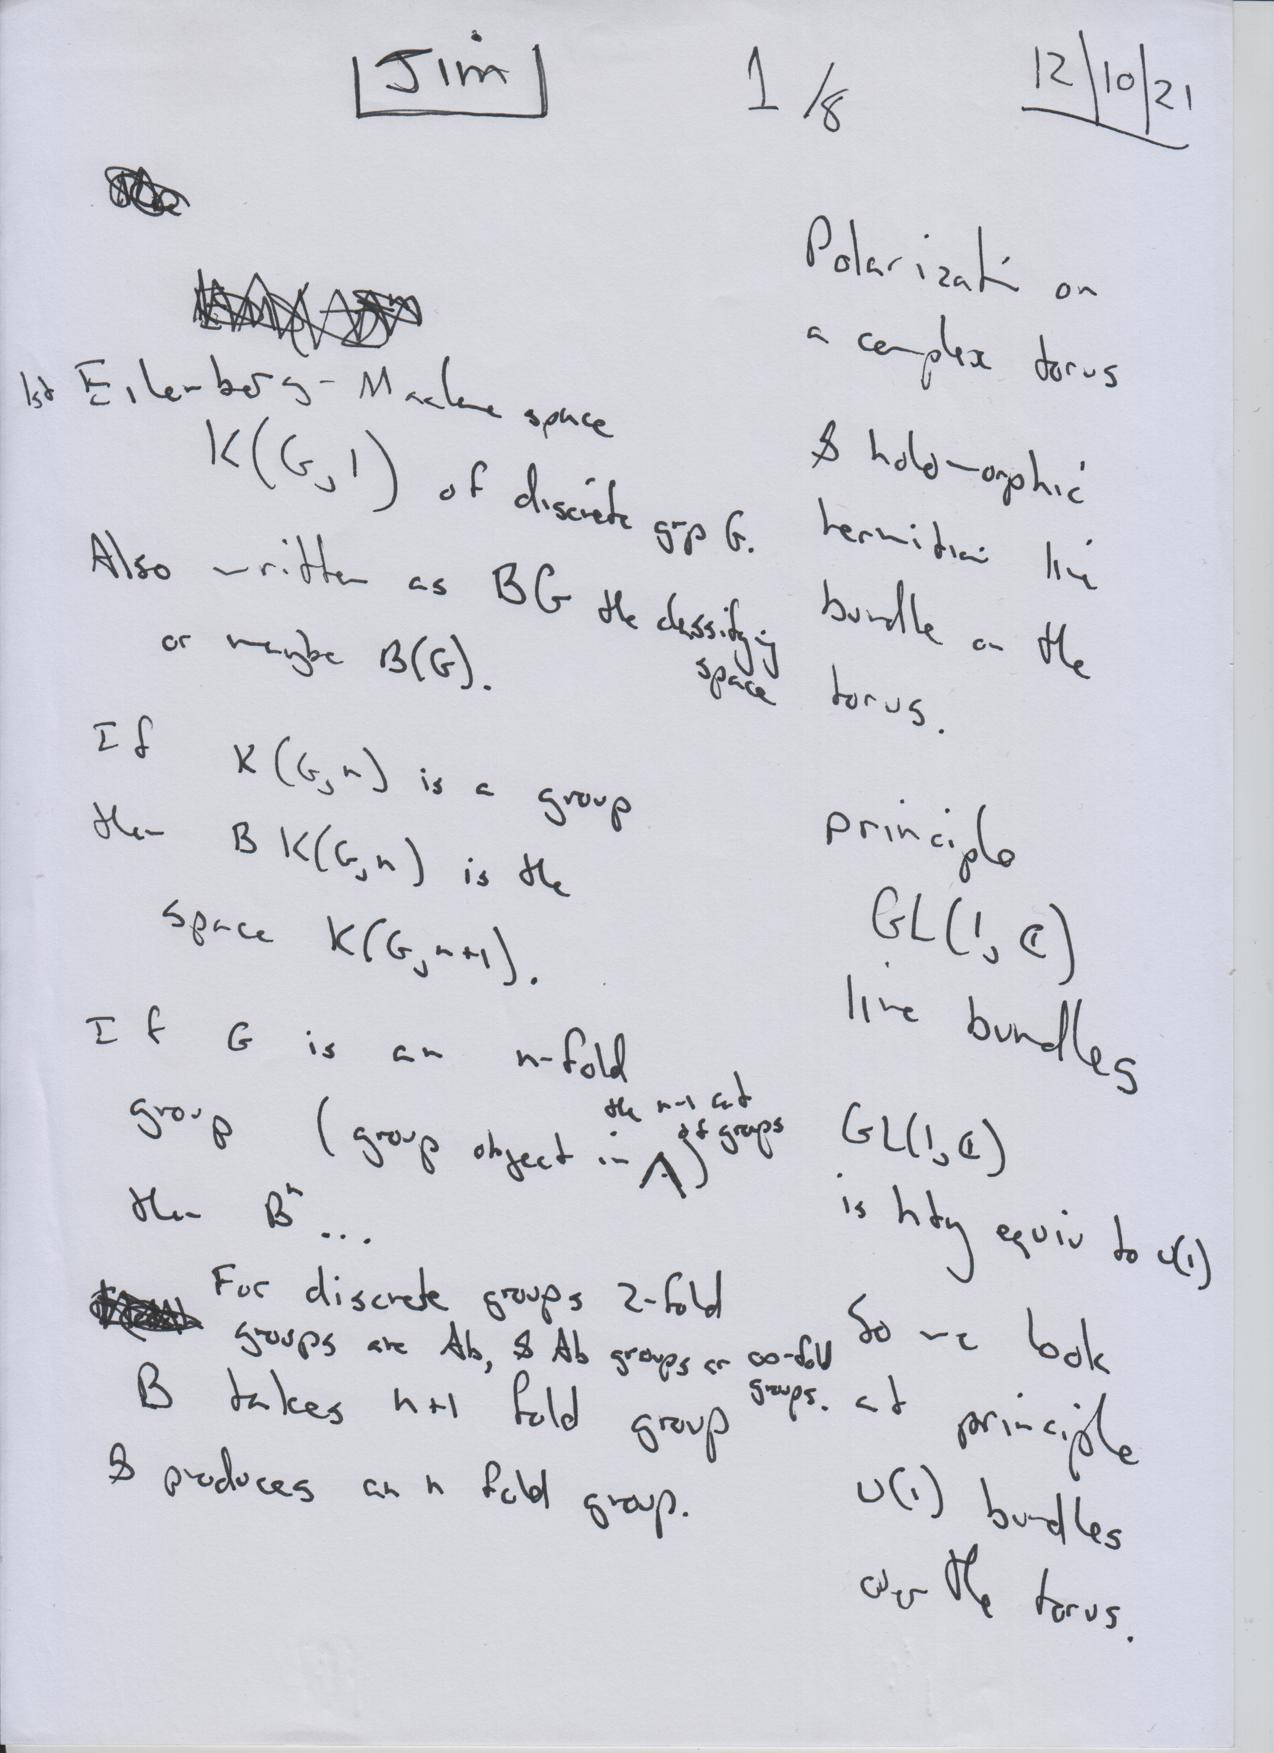 Jim
1/8
12/10/21
1st Eilenberg-Maclane space
K(G,1) of discrete grp G.
Also written as BG the classifying space
or maybe B(G).
If K(G,n) is a group
then B K(G,n) is the
space K(G,n+1).
If G is an n-fold
group (group object in the n-1 cat of groups)
then Bⁿ ...
For discrete groups 2-fold
groups are Ab, & Ab groups are ∞-fold groups.
B takes n+1 fold group
& produces an n fold group.
Polarizati on
a complex torus
& holomorphic
hermitian line
bundle on the
torus.
principle
GL(1,ℂ)
line bundles
GL(1,ℂ)
is hty equiv to U(1)
So we look
at principle
U(1) bundles
over the torus.